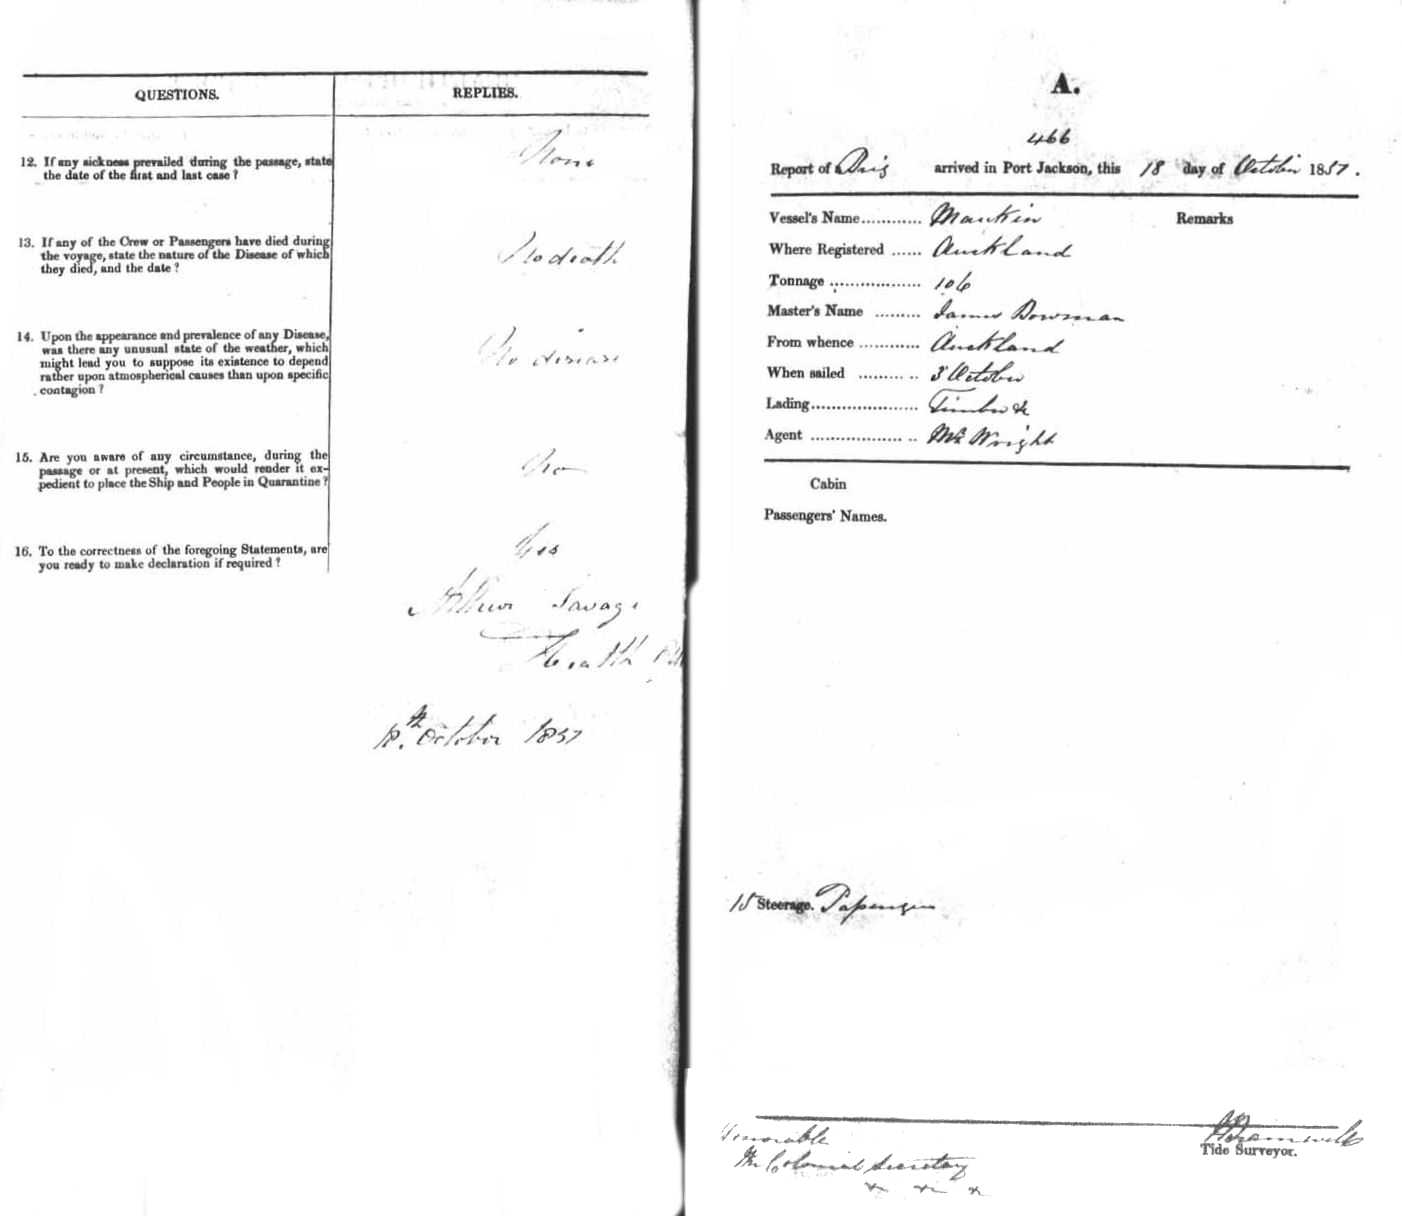 QUESTIONS.
REPLIES.
12. If any sickness prevailed during the passage, state
the date of the first and last case ?
None
13. If any of the Crew or Passengers have died during
the voyage, state the nature of the Disease of which
they died, and the date ?
No death
14. Upon the appearance and prevalence of any Disease,
was there any unusual state of the weather, which
might lead you to suppose its existence to depend
rather upon atmospherical causes than upon specific
contagion ?
No disease
15. Are you aware of any circumstance, during the
passage or at present, which would render it ex-
pedient to place the Ship and People in Quarantine ?
No
16. To the correctness of the foregoing Statements, are
you ready to make declaration if required ?
Yes
Savage
Health
18th October 1857
A.
466
Report of Brig arrived in Port Jackson, this 18 day of October 1857.
Vessel's Name............ Maukin
Remarks
Where Registered ...... Auckland
Tonnage .................. 106
Master's Name ......... James Bowman
From whence ............ Auckland
When sailed ......... .. 3 October
Lading..................... Timber &
Agent .................. .. Mr Wright
Cabin
Passengers' Names.
15 Steerage. Passengers
Honorable
The Colonial Secretary
Bramwell
Tide Surveyor.